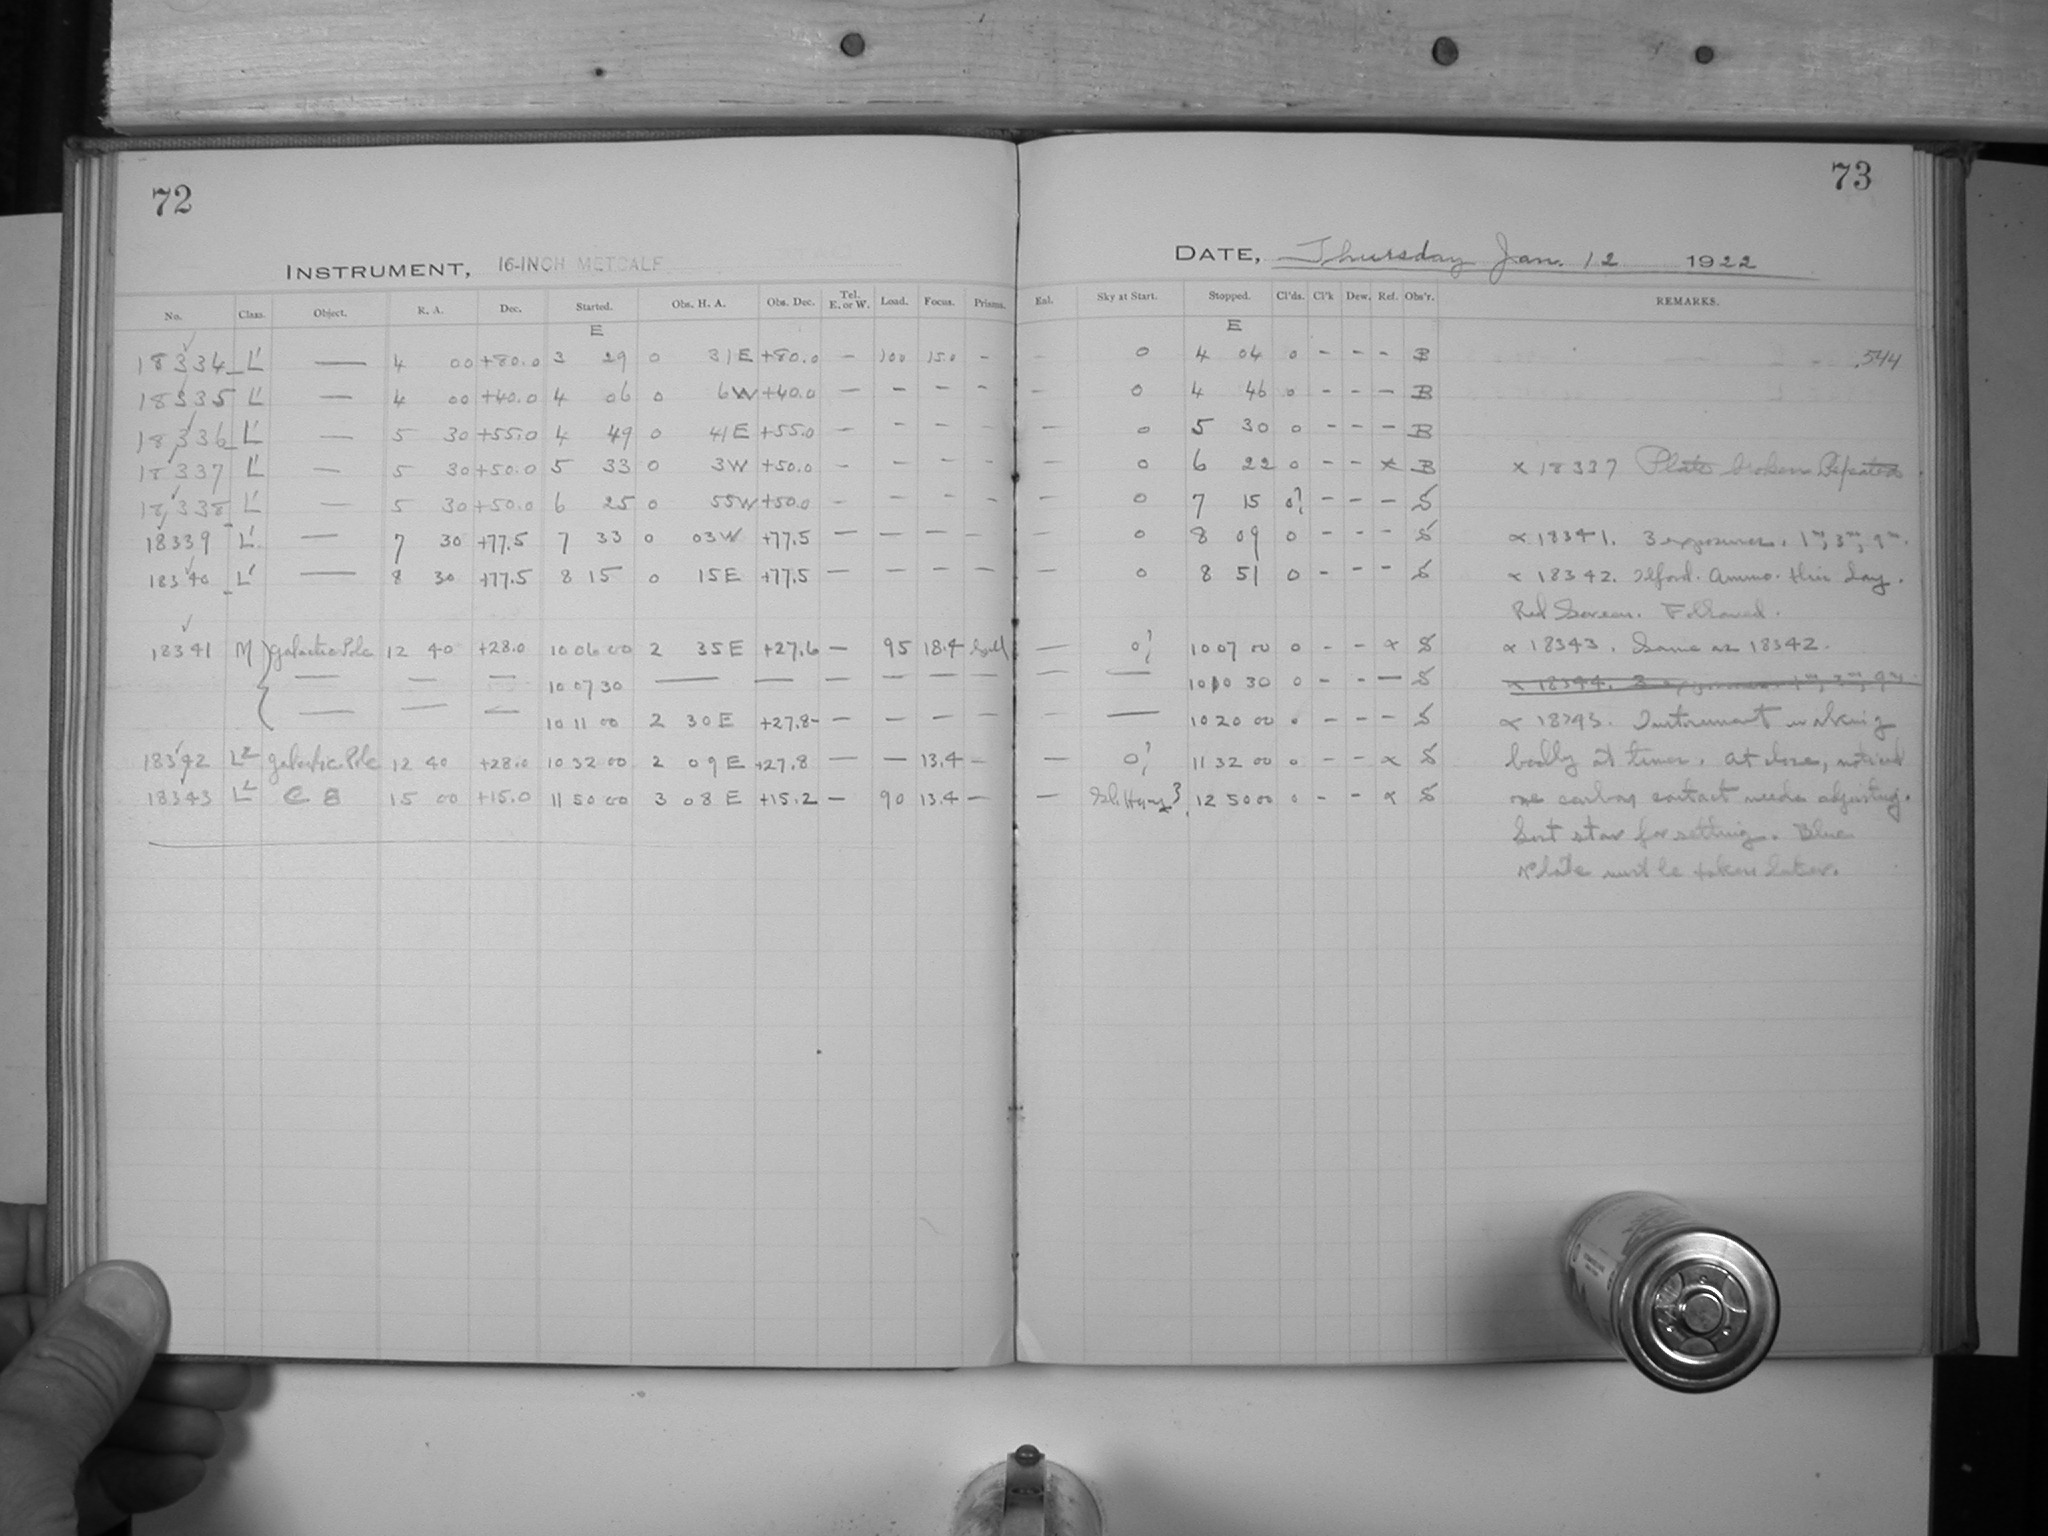 72
INSTRUMENT, 16-INCH METCALF
No. Class. Object. R. A. Dec. Started. Obs. H. A. Obs. Dec. Tel. E. or W. Load. Focus. Prisms.
E
18334 L' — 4 00 +80.0 3 29 0 31E +80.0 — 100 15.0 —
18335 L' — 4 00 +40.0 4 06 0 6W +40.0 — — — —
18336 L' — 5 30 +55.0 4 49 0 41E +55.0 — — — —
18337 L' — 5 30 +50.0 5 33 0 3W +50.0 — — — —
18338 L' — 5 30 +50.0 6 25 0 55W +50.0 — — — —
18339 L' — 7 30 +77.5 7 33 0 03W +77.5 — — — —
18340 L' — 8 30 +77.5 8 15 0 15E +77.5 — — — —
18341 M galactic Pole 12 40 +28.0 10 06 00 2 35E +27.6 — 95 18.4
— — — 10 07 30 — — — — — —
— — — 10 11 00 2 30E +27.8 — — — —
18342 L2 galactic Pole 12 40 +28.0 10 32 00 2 09E +27.8 — — 13.4 —
18343 L2 C 8 15 00 +15.0 11 50 00 3 08E +15.2 — 90 13.4 —
73
DATE, Thursday Jan. 12 1922
Eal. Sky at Start. Stopped. Cl'ds. Cl'k Dew. Ref. Obs'r. REMARKS.
E
— 0 4 04 0 - - - B .544
— 0 4 46 0 - - - B
— 0 5 30 0 - - - B
— 0 6 22 0 - - x B x 18337 Plate broken Repeated
— 0 7 15 0? - - - S
— 0 8 09 0 - - - S x 18341. 3 exposures. 1m, 3m, 9m.
— 0 8 51 0 - - - S x 18342. Ilford. Ammo. this day.
Red Screen. Followed.
— 0? 10 07 00 0 - - x S x 18343. Same as 18342.
— — 10 10 30 0 - - — S x 18344. 3 exposures 1m, 3m, 9m
— — 10 20 00 0 - - - S x 18343. Instrument working
— 0? 11 32 00 0 - - x S badly at times. At close, noticed
— 12 50 00 0 - - x S one carbon contact needs adjusting.
star for setting. Blue
Plate must be taken later.